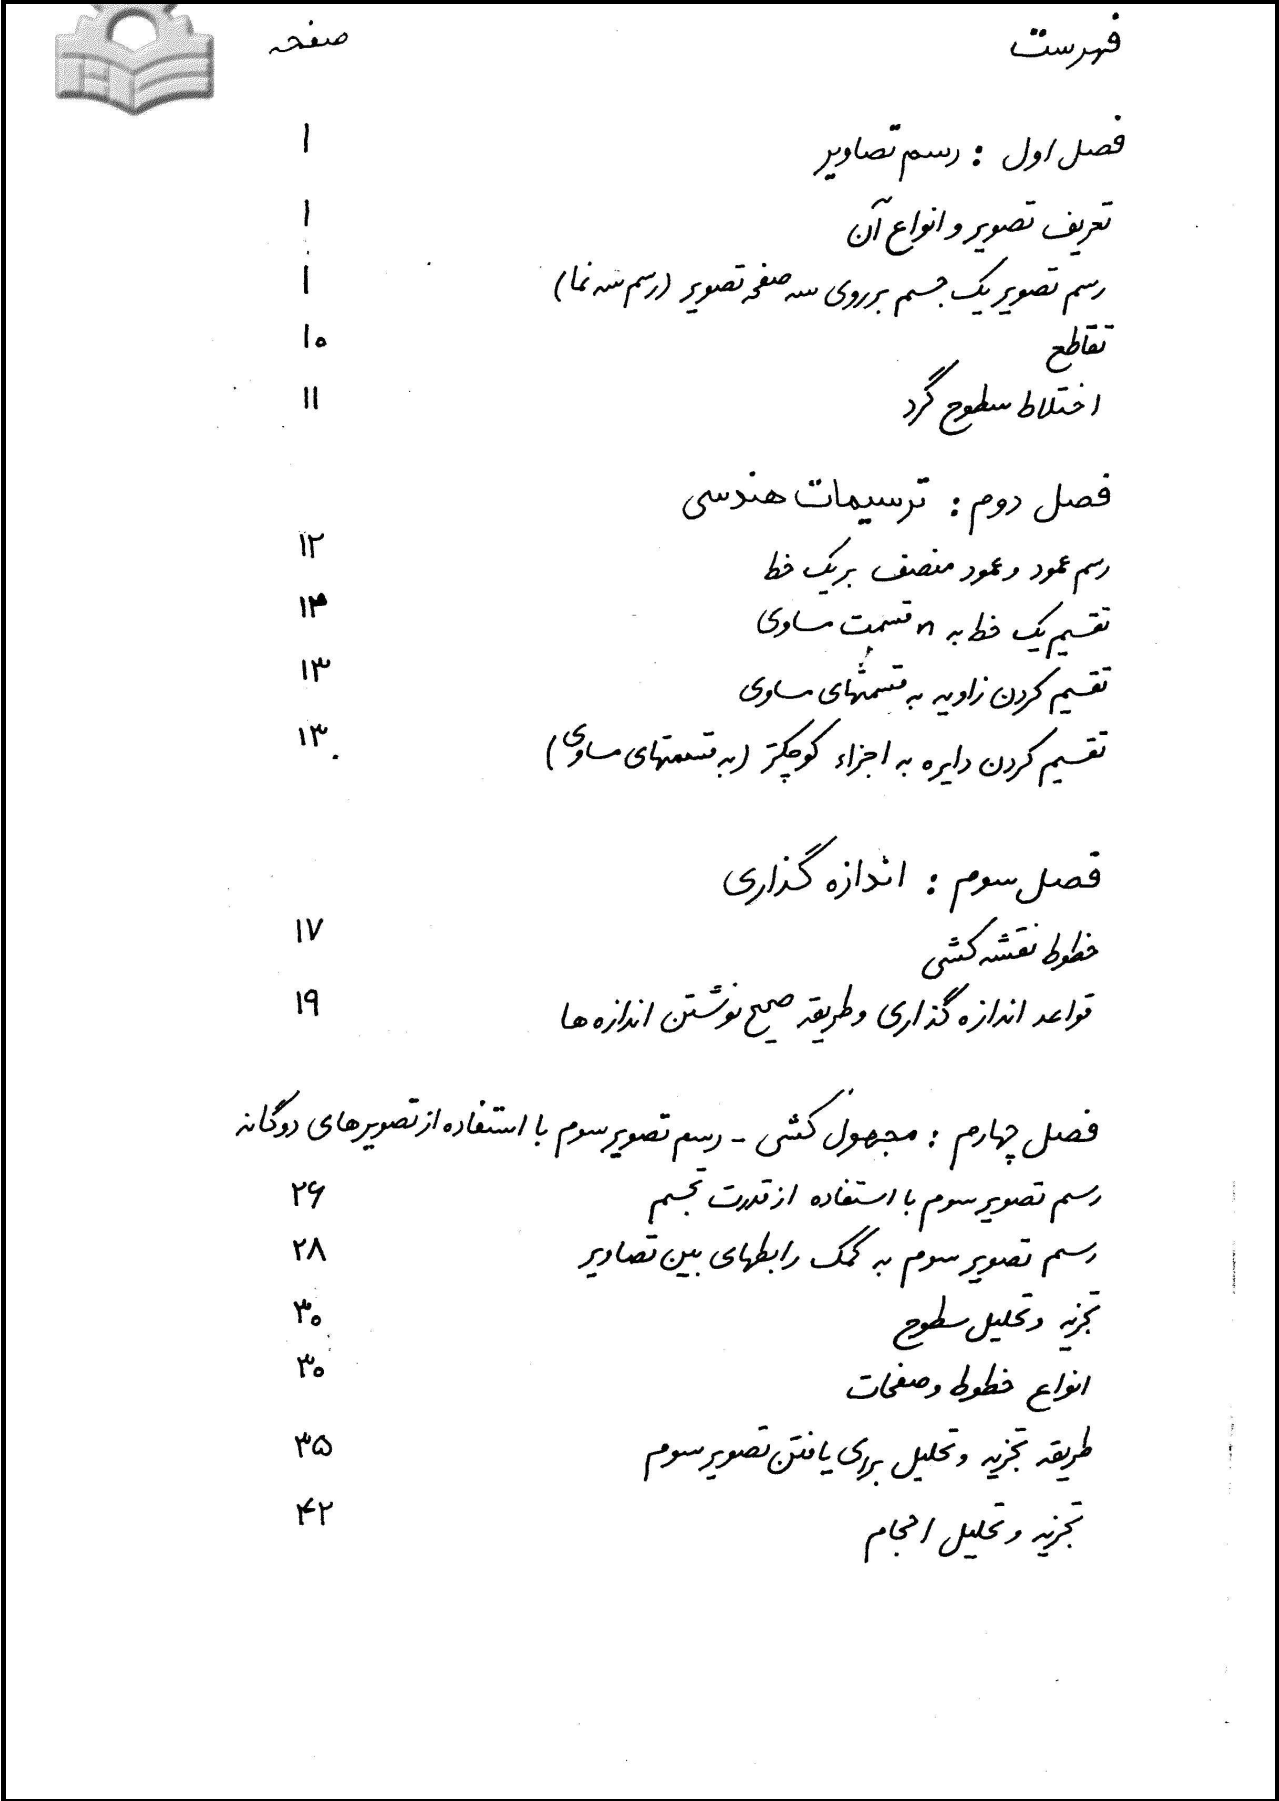 فهرست صفحه
فصل اول : رسم تصاویر ۱
تعریف تصویر و انواع آن ۱
رسم تصویر یک جسم بر روی سه صفحه تصویر (رسم سه نما) ۱
تقاطع ۱۰
اختلاط سطوح گرد ۱۱
فصل دوم : ترسیمات هندسی
رسم عمود و عمود منصف بر یک خط ۱۲
تقسیم یک خط به n قسمت مساوی ۱۳
تقسیم کردن زاویه به قسمتهای مساوی ۱۳
تقسیم کردن دایره به اجزاء کوچکتر (به قسمتهای مساوی) ۱۳
فصل سوم : اندازه گذاری
خطوط نقشه کشی ۱۷
قواعد اندازه گذاری و طریقه صحیح نوشتن اندازه ها ۱۹
فصل چهارم : مجهول کشی - رسم تصویر سوم با استفاده از تصویرهای دوگانه
رسم تصویر سوم با استفاده از قدرت تجسم ۲۶
رسم تصویر سوم به کمک رابطهای بین تصاویر ۲۸
تجزیه و تحلیل سطوح ۳۰
انواع خطوط و صفحات ۳۰
طریقه تجزیه و تحلیل برای یافتن تصویر سوم ۳۵
تجزیه و تحلیل احجام ۴۲